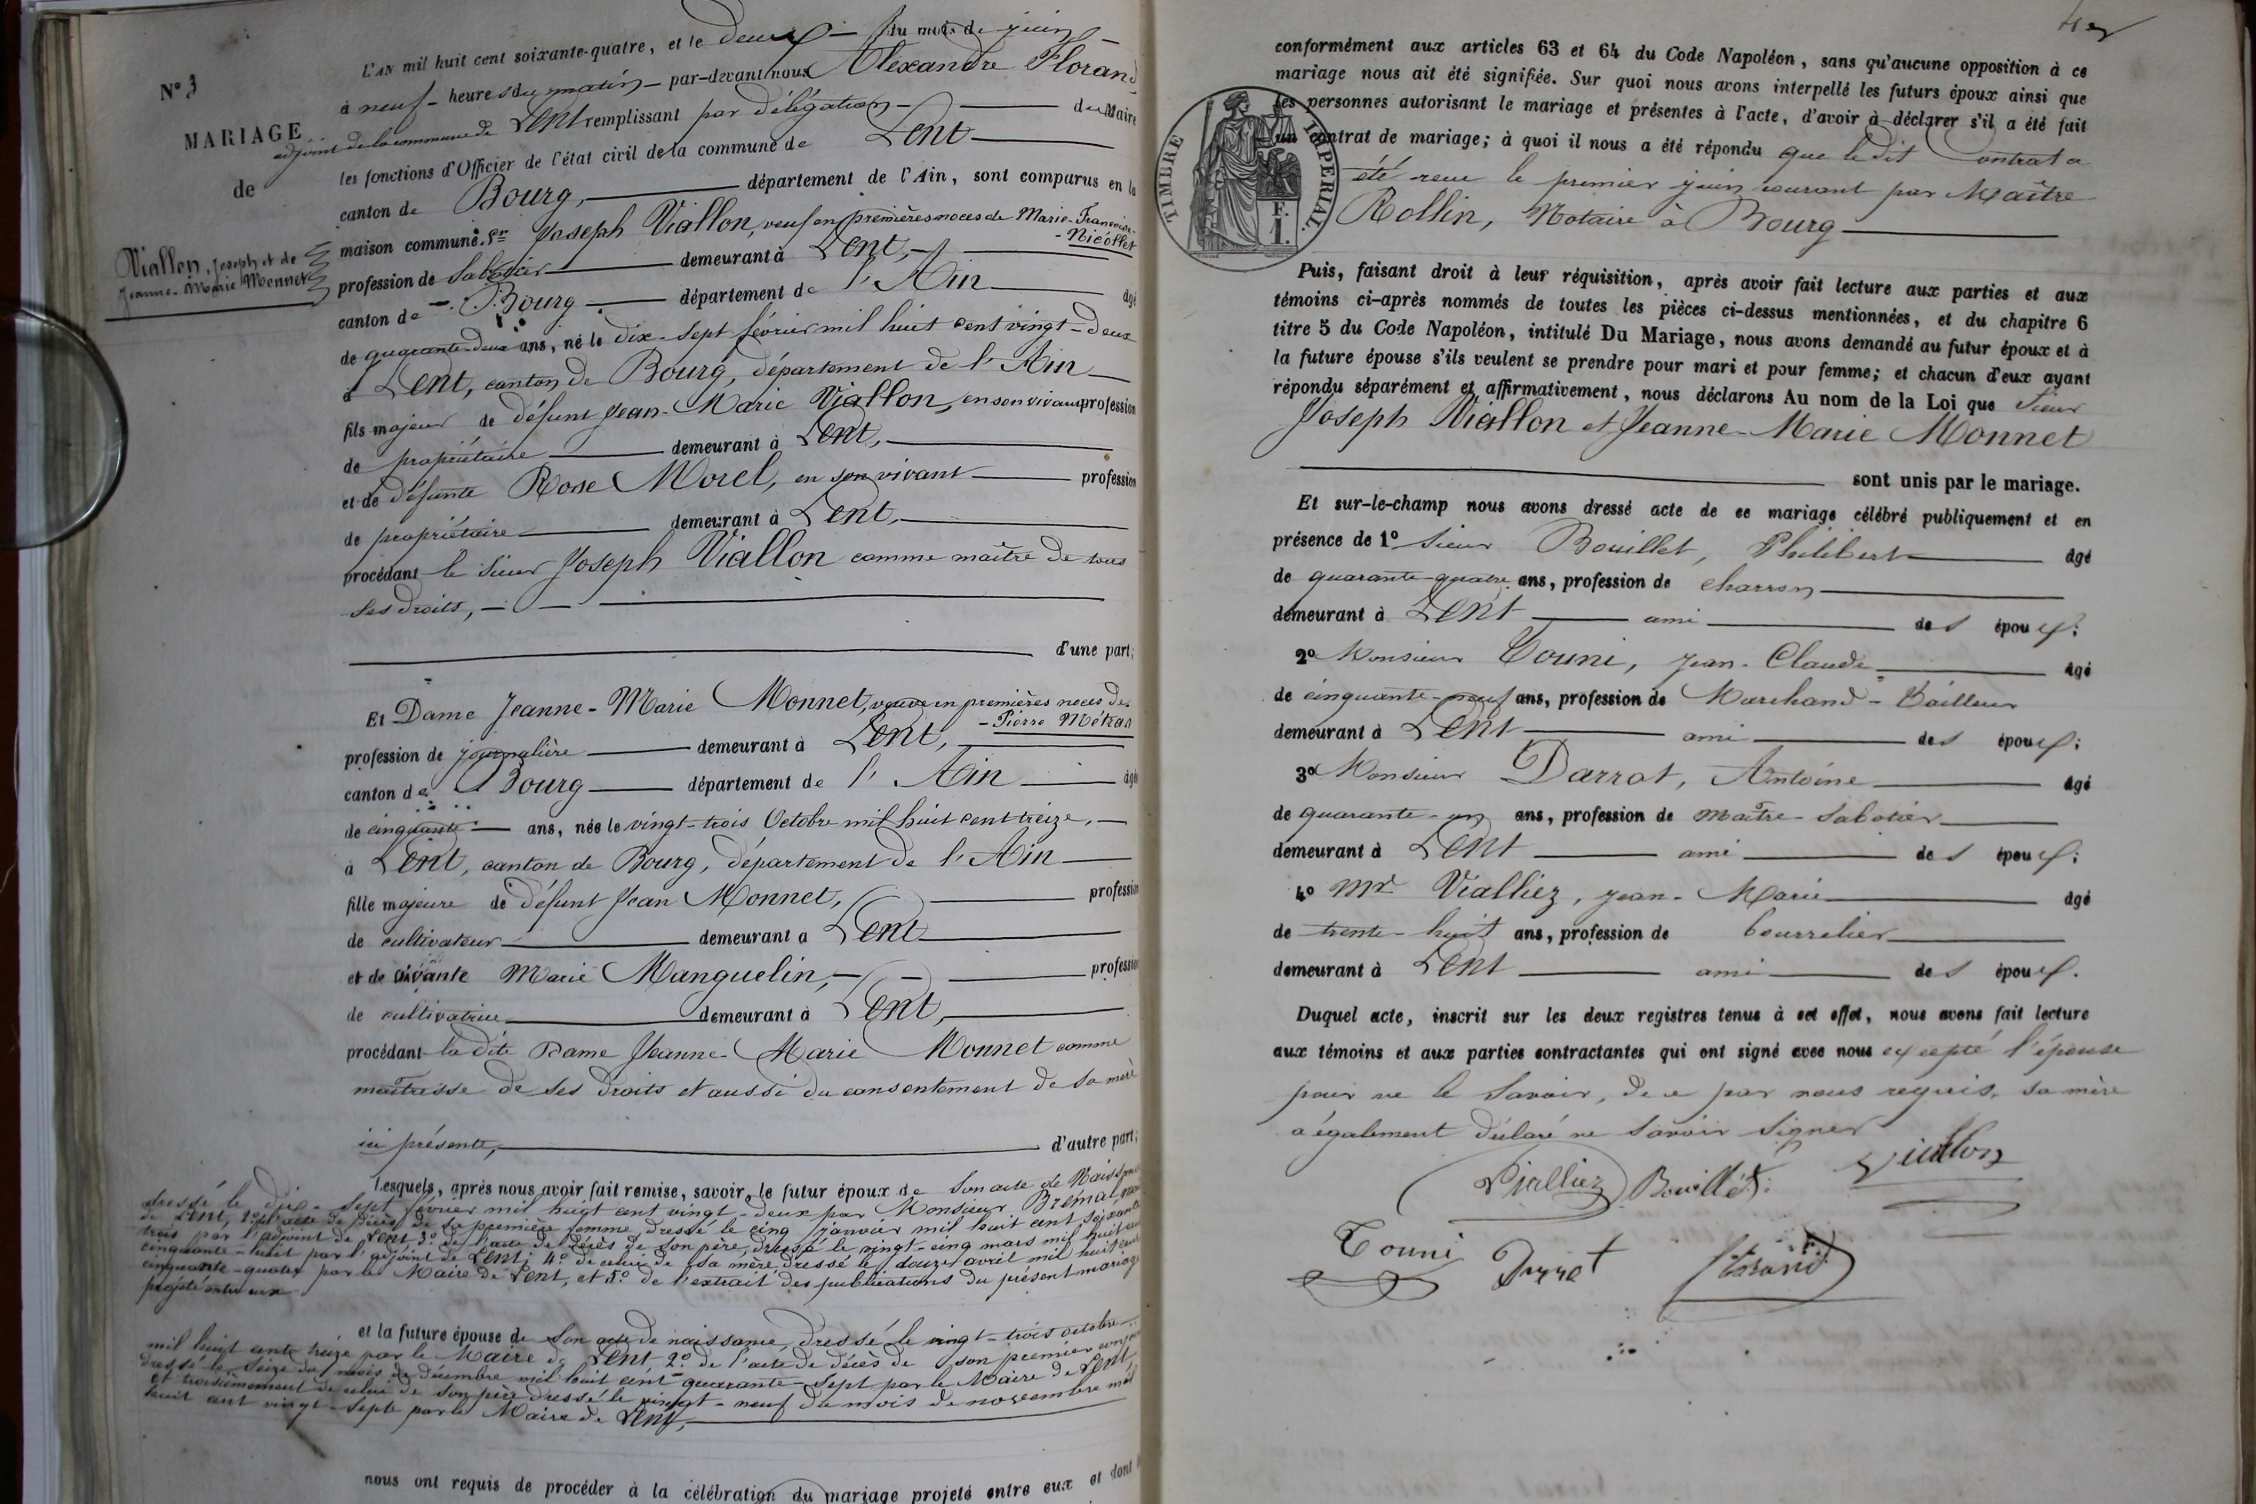 N° 3
MARIAGE
de
Viallon, Joseph et de
Jeanne-Marie Monnet
L'AN mil huit cent soixante-quatre, et le deux du mois de juin
à neuf heures du matin par-devant nous Alexandre Florand
adjoint de la commune de Lent remplissant par délégation du Maire
les fonctions d'Officier de l'état civil de la commune de Lent
canton de Bourg, département de l'Ain, sont comparus en la
maison commune: Sr Joseph Viallon, veuf en premières noces de Marie-Françoise
-Nicollet
profession de sabotier demeurant à Lent,
canton de Bourg département de l'Ain âgé
de quarante-deux ans, né le dix-sept février mil huit cent vingt-deux
à Lent, canton de Bourg, département de l'Ain
fils majeur de défunt Jean-Marie Viallon, en son vivant profession
de propriétaire demeurant à Lent,
et de défunte Rose Morel, en son vivant profession
de propriétaire demeurant à Lent,
procédant le sieur Joseph Viallon comme maître de tous
ses droits,
d'une part;
Et Dame Jeanne-Marie Monnet, veuve en premières noces de
-Pierre Métras
profession de journalière demeurant à Lent,
canton de Bourg département de l'Ain âgée
de cinquante ans, née le vingt-trois Octobre mil huit cent treize,
à Lent, canton de Bourg, département de l'Ain
fille majeure de défunt Jean Monnet, profession
de cultivateur demeurant à Lent
et de vivante Marie Manguelin, profession
de cultivatrice demeurant à Lent,
procédant la dite Dame Jeanne-Marie Monnet comme
maîtresse de ses droits et aussi du consentement de sa mère
ici présente, d'autre part;
Lesquels, après nous avoir fait remise, savoir, le futur époux de son acte de Naissance
dressé le dix-sept février mil huit cent vingt-deux par Monsieur Brémal, maire
de Lent, 2° de l'acte de décès de sa première femme dressé le cinq janvier mil huit cent soixante
trois par l'adjoint de Lent 3° de l'acte de décès de son père, dressé le vingt-cinq mars mil huit cent
cinquante-huit par l'adjoint de Lent; 4° de celui de sa mère dressé le douze avril mil huit cent
cinquante-quatre par le Maire de Lent, et 5° de l'extrait des publications du présent mariage
projeté entre eux
et la future épouse de son acte de naissance, dressé le vingt-trois octobre
mil huit cent treize par le Maire de Lent 2° de l'acte de décès de son premier conjoint
dressé le seize du mois de décembre mil huit cent quarante-sept par le Maire de Lent,
et troisièmement de celui de son père dressé le vingt-neuf du mois de novembre mil
huit cent vingt-sept par le Maire de Lent,
nous ont requis de procéder à la célébration du mariage projeté entre eux et dont
conformément aux articles 63 et 64 du Code Napoléon, sans qu'aucune opposition à ce
mariage nous ait été signifiée. Sur quoi nous avons interpellé les futurs époux ainsi que
les personnes autorisant le mariage et présentes à l'acte, d'avoir à déclarer s'il a été fait
un contrat de mariage; à quoi il nous a été répondu que le dit Contrat a
été reçu le premier juin courant par Maître
Rollin, Notaire à Bourg
TIMBRE IMPERIAL.
F.
1.
Puis, faisant droit à leur réquisition, après avoir fait lecture aux parties et aux
témoins ci-après nommés de toutes les pièces ci-dessus mentionnées, et du chapitre 6
titre 5 du Code Napoléon, intitulé Du Mariage, nous avons demandé au futur époux et à
la future épouse s'ils veulent se prendre pour mari et pour femme; et chacun d'eux ayant
répondu séparément et affirmativement, nous déclarons Au nom de la Loi que Sieur
Joseph Viallon et Jeanne-Marie Monnet
sont unis par le mariage.
Et sur-le-champ nous avons dressé acte de ce mariage célébré publiquement et en
présence de 1° Sieur Bouillet, Philibert âgé
de quarante-quatre ans, profession de charron
demeurant à Lent ami des époux;
2° Monsieur Touni, Jean-Claude âgé
de cinquante-neuf ans, profession de Marchand-Tailleur
demeurant à Lent ami des époux;
3° Monsieur Darrat, Antoine âgé
de quarante-un ans, profession de maître-sabotier
demeurant à Lent ami des époux;
4° Mr Vialliez, Jean-Marie âgé
de trente-huit ans, profession de bourrelier
demeurant à Lent ami des époux.
Duquel acte, inscrit sur les deux registres tenus à cet effet, nous avons fait lecture
aux témoins et aux parties contractantes qui ont signé avec nous excepté l'épouse
pour ne le savoir, de ce par nous requis, sa mère
a également déclaré ne savoir signer
Vialliez Bouillet Viallon
Touni Darrat Florand